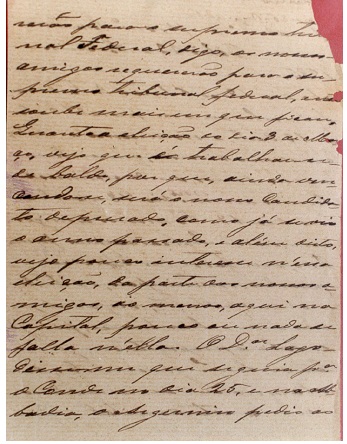 rerão para o supremo tribu
nal Federal, digo, os nossos
amigos requererão para o su
premo tribunal federal, on
de mais um que ficou.
Quanto a eleição
vejo que é trabalhar-se
de balde, por que, ainda ven
cendo-se, será o nosso candida
to depurado, como já se viu
o anno passado, e alem disto,
vejo pouco interesse n'essa
eleição, da parte dos nossos a
migos, ao menos, aqui na
Capital, pouco ou nada se
falla n'ella. O Dr. Lago
disse-me que seguia pa
o Conde no dia 25, e na
badia, o Argemiro pedio ao